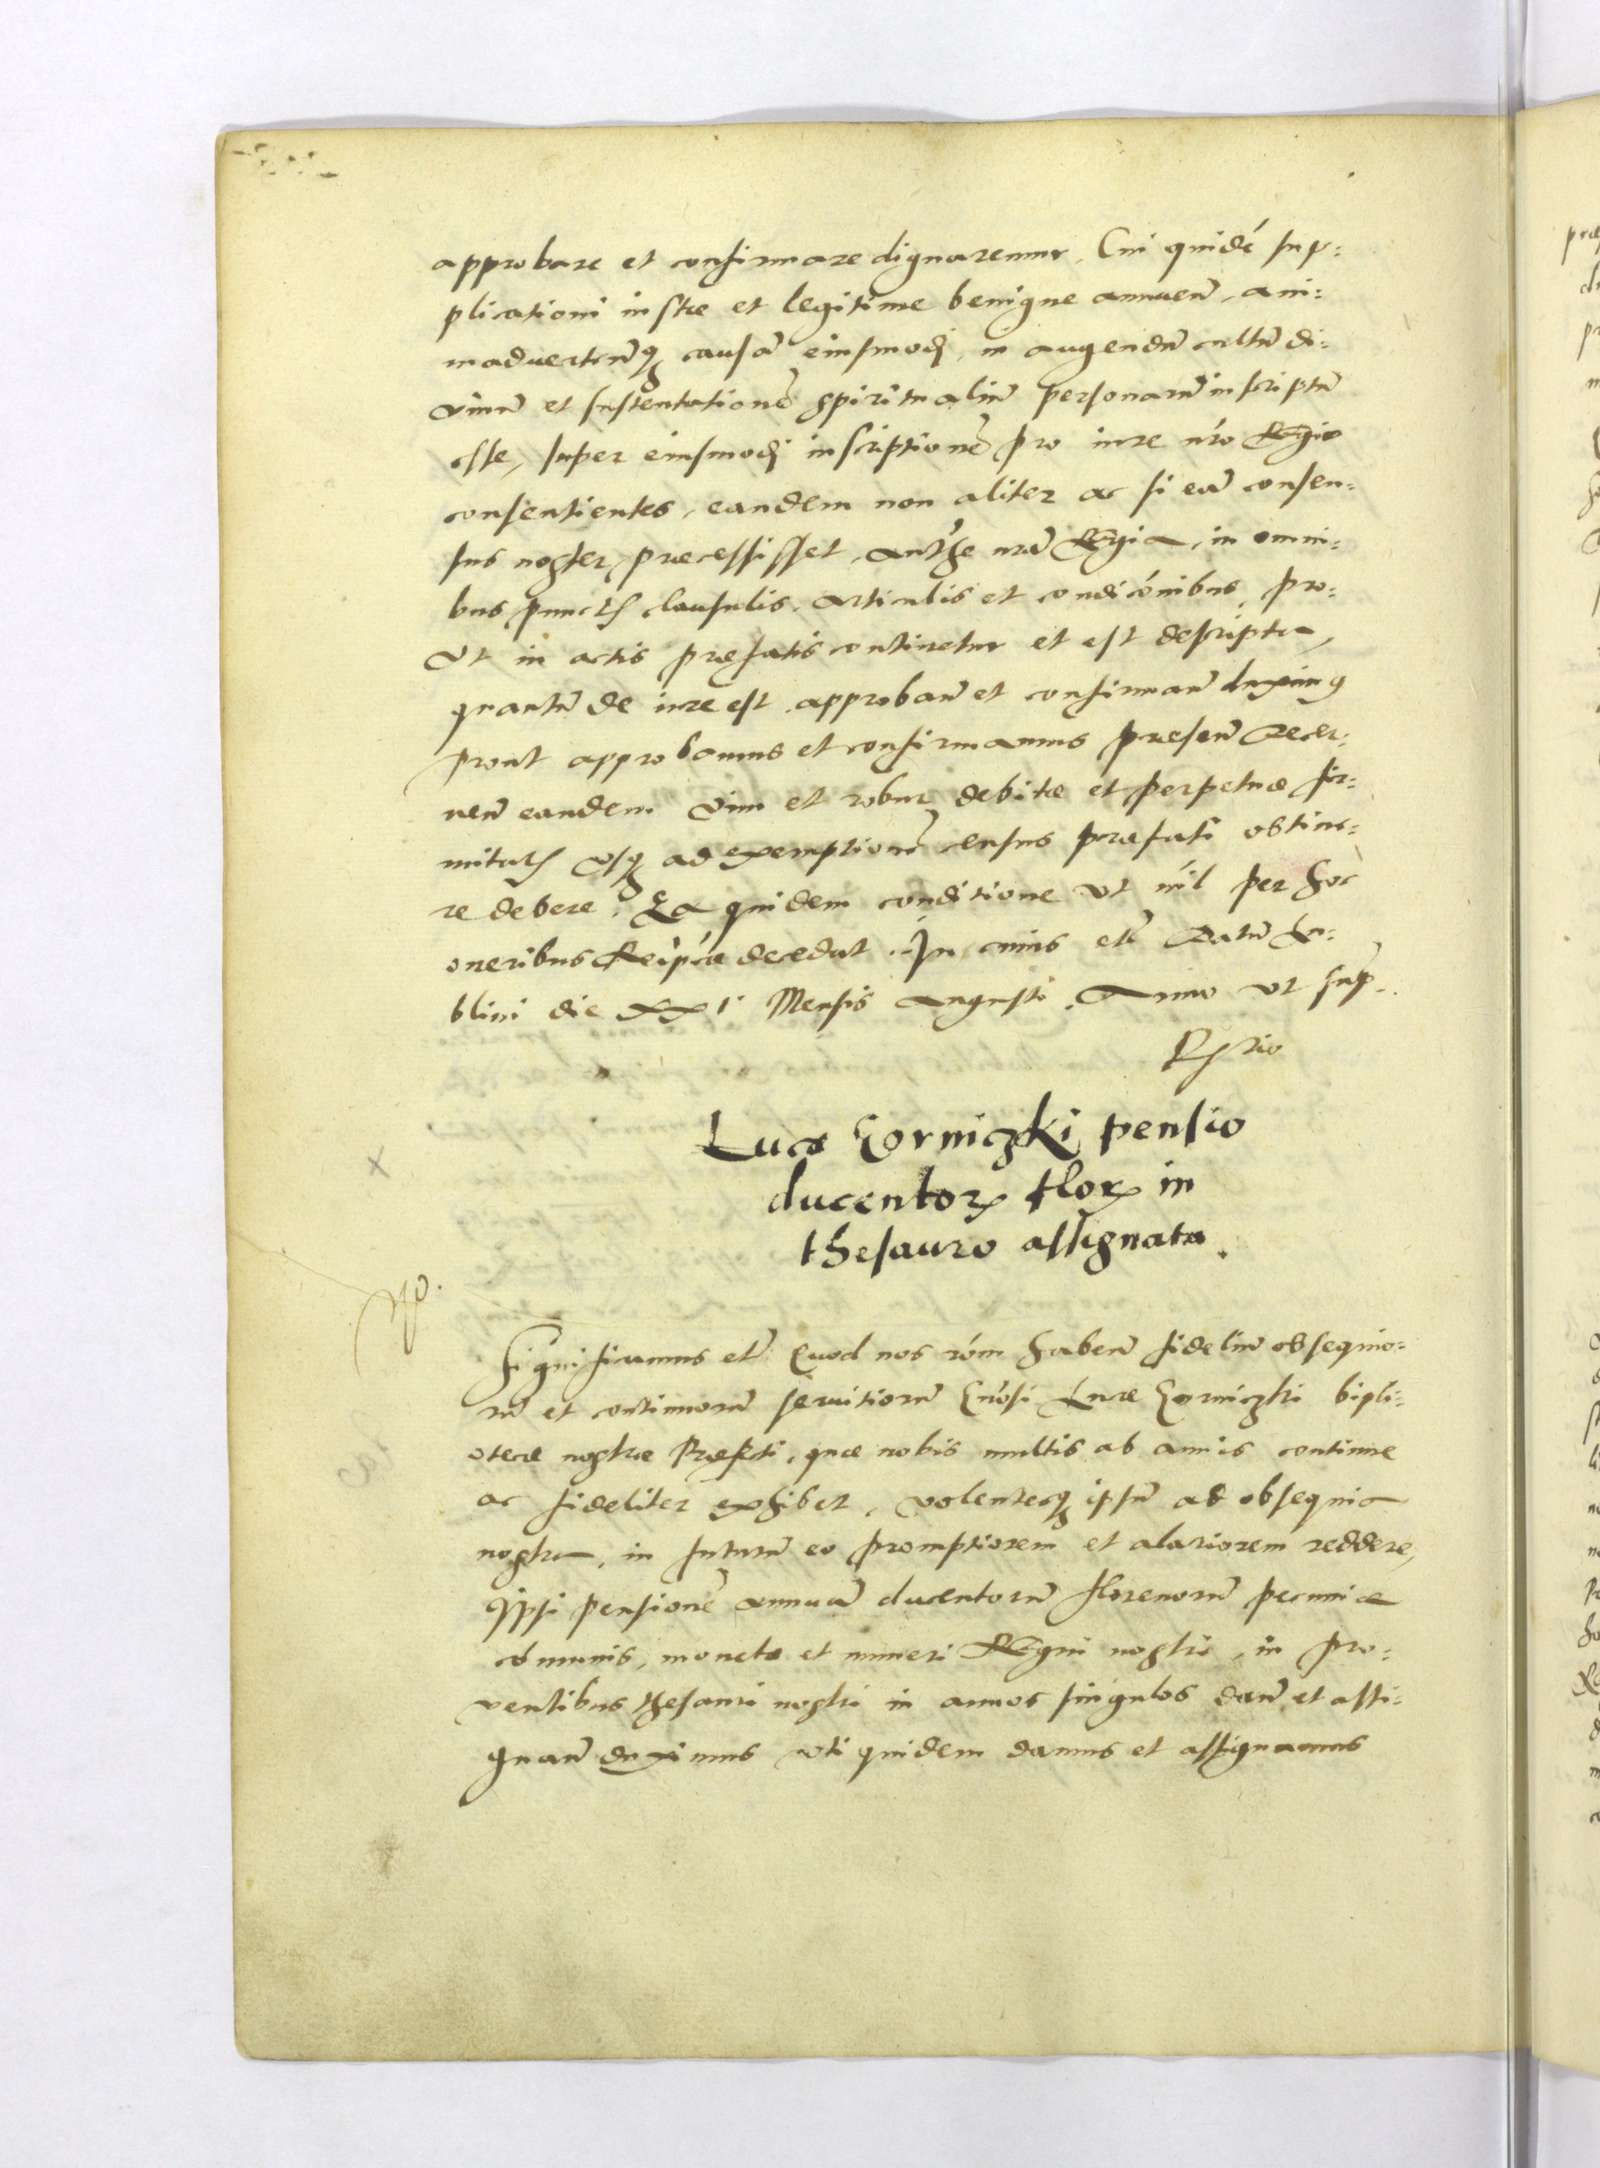 approbare et confirmare dignaremur. Cui quidē sup=
plicationi iustae et legitime benigne annuen̄, ani=
maduerten̄q₃ causā eiusmodj, in augendū cultū di=
vinū et sustentationē spiritualiū personarū inscriptū
esse, super eiusmodj inscriptionē pro iure nr̄o Regio
consentientes, eandem non aliter ac si eā consen=
sus noster praecessisset, aut̄he nr̄ā Regia, in omni=
bus punctꝭ clausulis, articulis et condic̄onibus, pro=
vt in actis praefatis continetur et est descripta,
quantū de iure est approban̄ et confirman̄ duximꝰ
prout approbamus et confirmamus praesen̄ Decer=
nen̄ eandem vim et robur debitae et perpetuae fir=
mitatꝭ vsq₃ ad exemptionē census praefati obtine=
re debere. Ea quidem conditione vt nīl per hoc
oneribus Reip̄cae decedat. In cuius etc̄ Datū Lu=
blini die XXI Mensis Augusti Anno vt sup̄.
R̄latio
x
Lucae Gorniczki pensio
ducentoꝝ floꝝ in
thesauro assignata.
Significamus etc̄ Quod nos rōm haben̄ fideliū obsequio=
rū et continuorū seruitiorū Gn̄osi Lucae Gorniczki bipli=
otecae nostrae Praefecti, quae nobis multis ab annis continue
ac fideliter exhibet, volentesq₃ ipsū ad obsequia
nostra, in futurū eo promptiorem et alacriorem reddere,
Ipsi pensionē annuā ducentorū florenorū pecuniae
cōmunis, monetae et numeri Regni nostri, in pro=
ventibus thesauri nostri in annos singulos dan̄ et assi=
gnan̄ duximus vti quidem damus et assignamus